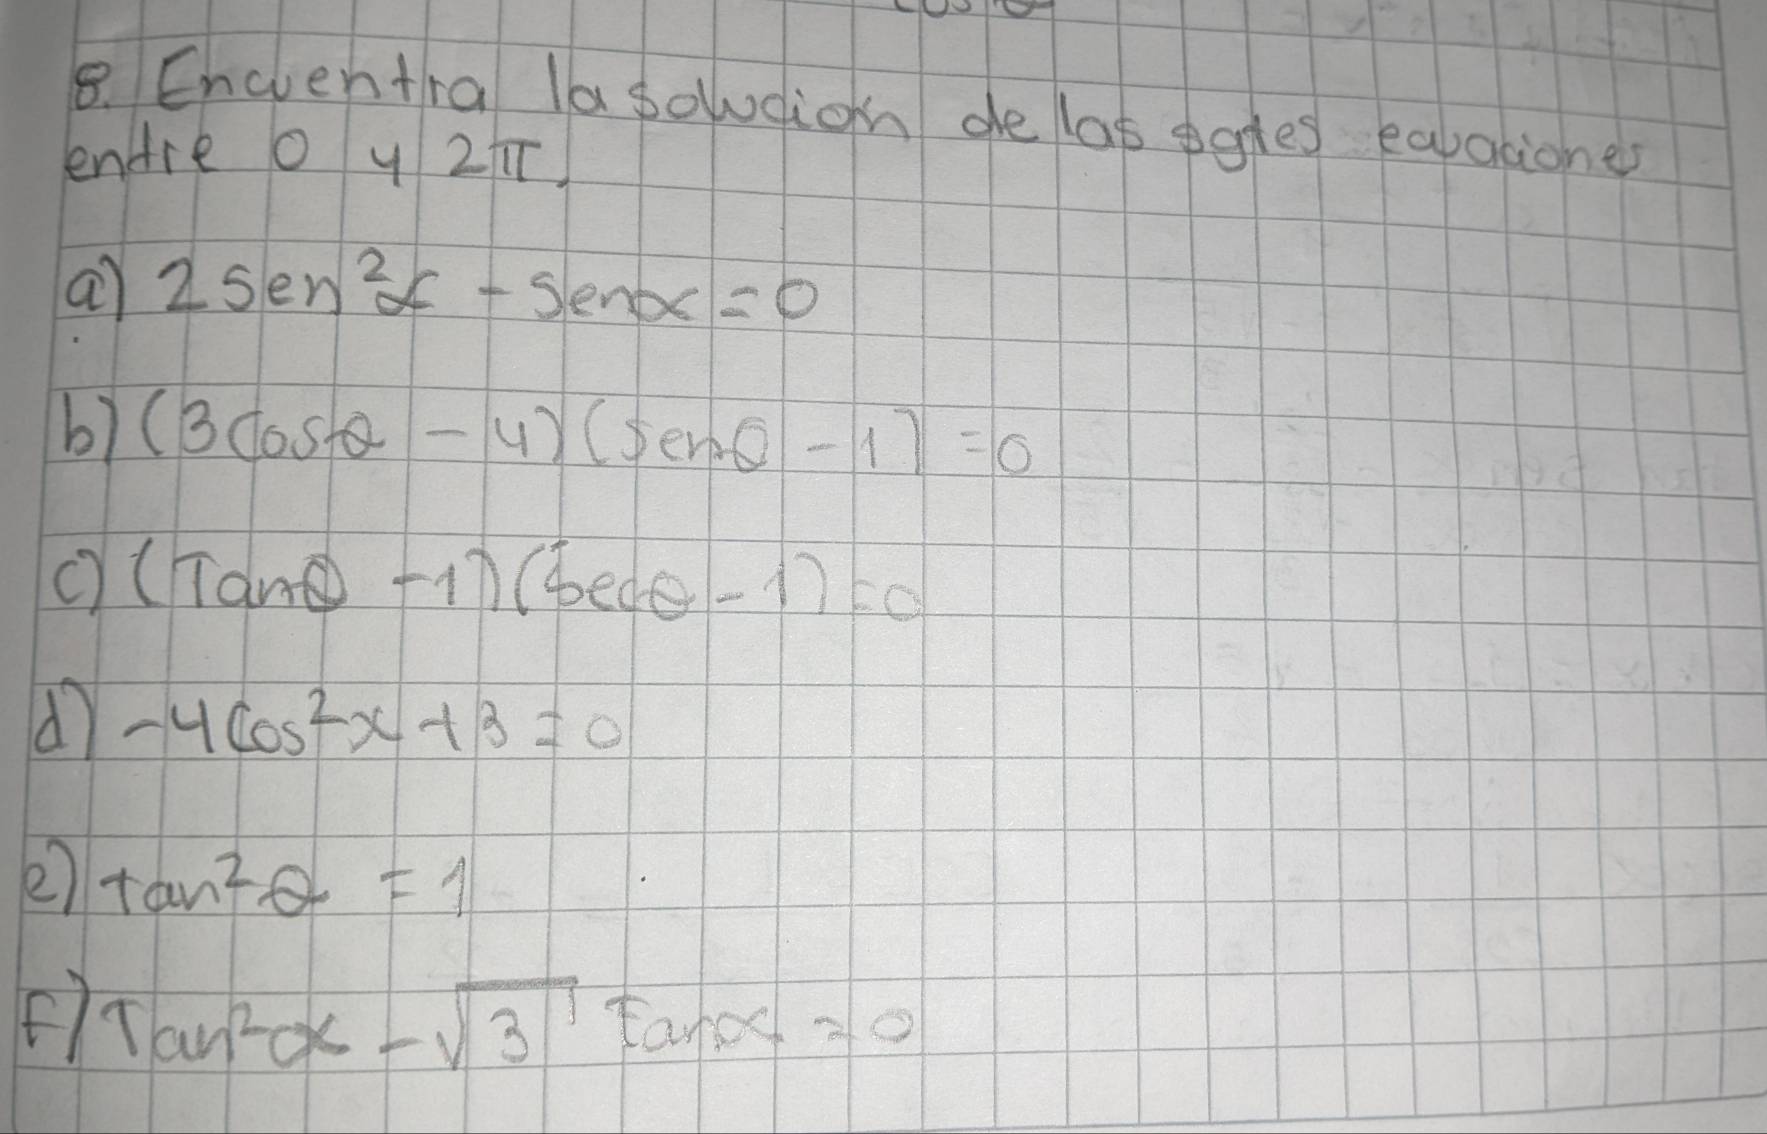 8. Encuentra la solución de las sgtes ecuaciones
entre 0 y 2π.
a) 2 sen²x - senx = 0
b) (3 Cosθ - 4) (senθ - 1) = 0
c) (Tanθ - 1) (Secθ - 1) = 0
d) -4 Cos²x + 3 = 0
e) tan²θ = 1
f) Tan²x - √3 tanx = 0